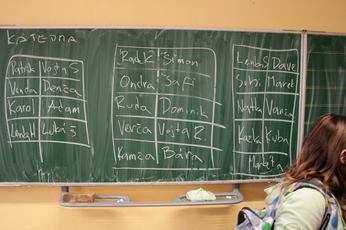 KATEDRA
Patrik Vojta S
Venda Denča
Karol Adam
Lenka H Lukáš
Radek Šimon
Ondra Safi
Ruda Dominik
Verča Vojta R
Kamča Bára
Lenka S Dave
Subi Marek
Natka Vanča
Kačka Kuba
Markéta